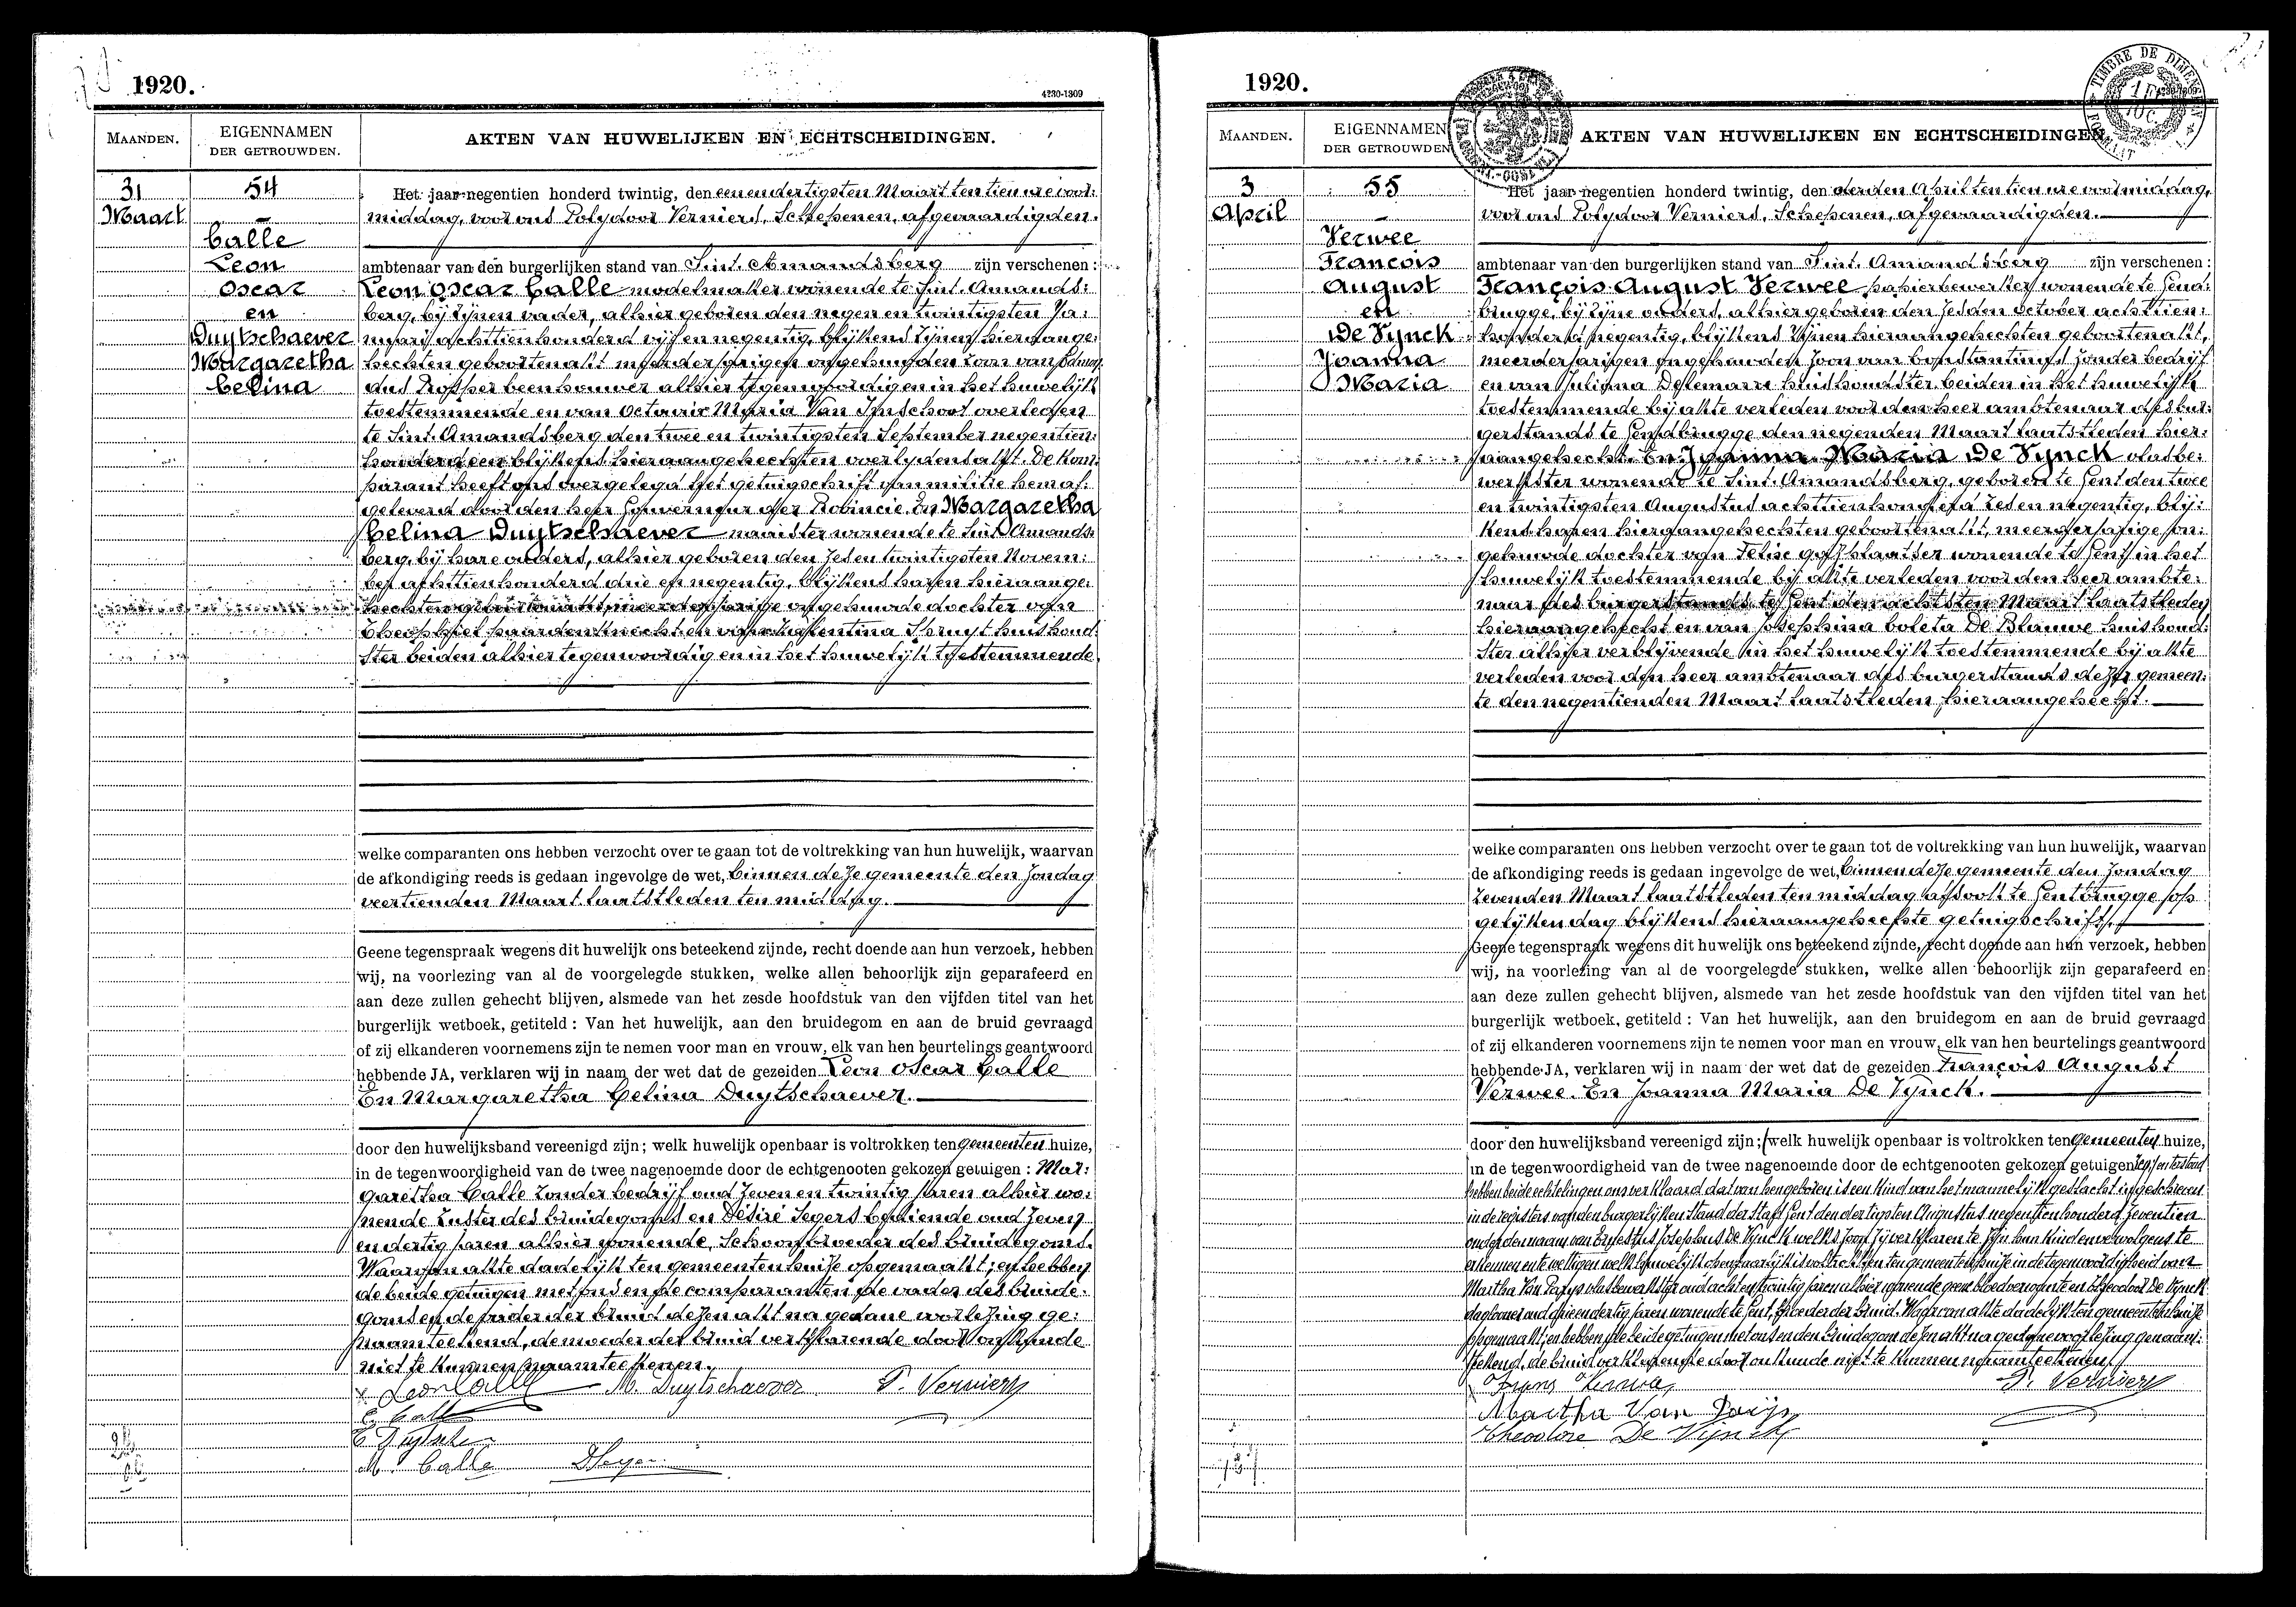 1920.
4230-1309
MAANDEN.
EIGENNAMEN
DER GETROUWDEN.
AKTEN VAN HUWELIJKEN EN ECHTSCHEIDINGEN.
31
Maart
54
Calle
Leon
Oscar
en
Duytschaever
Margaretha
Celina
Het jaar negentien honderd twintig, den eenendertigsten Maart ten tien ure voor:
middag, voor ons Polydoor Verniers, Schepenen, afgevaardigden.
ambtenaar van den burgerlijken stand van Sint. Amandsberg zijn verschenen :
Leon Oscar Calle modelmaker wonende te Sint. Amands:
berg, bij zijnen vader, alhier geboren den negen en twintigsten Ja:
nuari achttienhonderd vijf en negentig, blijkens zijnen hieraange:
hechten geboortenakt meerderjarigen ongehuwden zoon van
beenhouwer alhier tegenwoordig en in het huwelijk
toestemmende en van Octavie Maria Van Ijnschoot overleden
te Sint. Amandsberg den twee en twintigsten September negentien:
honderd een blijkens hieraangehechten overlydensakt. De kom:
parant heeft ons overgelegd het getuigschrift van militie hem af:
geleverd door den heer Gouverneur der Provincie. En Margaretha
Celina Duytschaever naaister wonende te Sint. Amands:
berg, bij hare ouders, alhier geboren den zes en twintigsten Novem:
ber achttienhonderd drie en negentig, blijkens haren hieraange:
hechten geboortenakt, meerderjarige ongehuwde dochter van
Theophiel paardenknecht en van Valentina Spruyt huishoud:
ster beiden alhier tegenwoordig en in het huwelijk toestemmende.
welke comparanten ons hebben verzocht over te gaan tot de voltrekking van hun huwelijk, waarvan
de afkondiging reeds is gedaan ingevolge de wet, binnen deze gemeente den zondag
veertienden Maart laatstleden ten middag.
Geene tegenspraak wegens dit huwelijk ons beteekend zijnde, recht doende aan hun verzoek, hebben
wij, na voorlezing van al de voorgelegde stukken, welke allen behoorlijk zijn geparafeerd en
aan deze zullen gehecht blijven, alsmede van het zesde hoofdstuk van den vijfden titel van het
burgerlijk wetboek, getiteld : Van het huwelijk, aan den bruidegom en aan de bruid gevraagd
of zij elkanderen voornemens zijn te nemen voor man en vrouw, elk van hen beurtelings geantwoord
hebbende JA, verklaren wij in naam der wet dat de gezeiden Leon Oscar Calle
En Margaretha Celina Duytschaever.
door den huwelijksband vereenigd zijn; welk huwelijk openbaar is voltrokken ten gemeenten huize,
in de tegenwoordigheid van de twee nagenoemde door de echtgenooten gekozen getuigen : Mar:
garetha Calle zonder bedrijf oud zeven en twintig jaren alhier wo:
nende zuster des bruidegoms en Désiré Segers bediende oud zeven
en dertig jaren alhier wonende, Schoonbroeder des bruidegoms.
Waarvan akte dadelijk ten gemeentenhuize opgemaakt; en hebben
de beide getuigen met ons en de comparanten de vader des bruide:
goms en de vader der bruid dezen akt na gedane voorlezing ge:
naamteekend, de moeder der bruid verklarende door onkunde
niet te kunnen naamteekenen.
Leon Calle M. Duytschaever P. Verniers
E. Calle
M. Calle
1920.
MAANDEN.
EIGENNAMEN
DER GETROUWDEN
AKTEN VAN HUWELIJKEN EN ECHTSCHEIDINGEN
TIMBRE DE DIMENSION
3
April
55
Verwee
François
August
en
De Vynck
Joanna
Maria
Het jaar negentien honderd twintig, den derden April ten tien ure voormiddag,
voor ons Polydoor Verniers, Schepenen, afgevaardigden.
ambtenaar van den burgerlijken stand van Sint. Amandsberg zijn verschenen :
François August Verwee papierbewerker wonende te Gend:
brugge, bij zijne ouders, alhier geboren den zesden October achttien:
honderd negentig, blijkens zijnen hieraangehechten geboortenakt,
meerderjarigen ongehuwden zoon van Constantinus zonder bedrijf
en van Juliana huishoudster beiden in het huwelijk
toestemmende bij akte verleden voor den heer ambtenaar des bur:
gerstands te Gendbrugge den negenden Maart laatstleden hier:
aangehecht. En Joanna Maria De Vynck vlasbe:
werkster wonende te Sint. Amandsberg, geboren te Gent den twee
en twintigsten Augustus achttienhonderd zes en negentig, blij:
kens haren hieraangehechten geboortenakt, meerderjarige on:
gehuwde dochter van Felix wonende te Gent in het
huwelijk toestemmende bij akte verleden voor den heer ambte:
naar des burgerstands te Gent den achtsten Maart laatstleden
hieraangehecht en van Josephina Coleta De Blauwe huishoud:
ster alhier verblijvende in het huwelijk toestemmende bij akte
verleden voor den heer ambtenaar des burgerstands dezer gemeen:
te den negentienden Maart laatstleden hieraangehecht.
welke comparanten ons hebben verzocht over te gaan tot de voltrekking van hun huwelijk, waarvan
de afkondiging reeds is gedaan ingevolge de wet, binnen deze gemeente den zondag
zevenden Maart laatstleden ten middag alsook te Gentbrugge op
gelijken dag blijkens hieraangehechte getuigschrift.
Geene tegenspraak wegens dit huwelijk ons beteekend zijnde, recht doende aan hun verzoek, hebben
wij, na voorlezing van al de voorgelegde stukken, welke allen behoorlijk zijn geparafeerd en
aan deze zullen gehecht blijven, alsmede van het zesde hoofdstuk van den vijfden titel van het
burgerlijk wetboek, getiteld : Van het huwelijk, aan den bruidegom en aan de bruid gevraagd
of zij elkanderen voornemens zijn te nemen voor man en vrouw, elk van hen beurtelings geantwoord
hebbende JA, verklaren wij in naam der wet dat de gezeiden François August
Verwee. En Joanna Maria De Vynck.
door den huwelijksband vereenigd zijn; welk huwelijk openbaar is voltrokken ten gemeenten huize,
in de tegenwoordigheid van de twee nagenoemde door de echtgenooten gekozen getuigen
hebben beide echtelingen ons verklaard dat van hen geboren is een kind van het mannelijk geslacht ingeschreven
in de registers van den burgerlijken stand der stad Gent den dertigsten Augustus negentienhonderd zeventien
onder den naam van Josephus De Vynck welk zoon zij verklaren te zijn hun kind en vervolgens te
erkennen en te wettigen welk huwelijk openbaarlijk is voltrokken ten gemeentenhuize in de tegenwoordigheid van
Martha Van vlasbewerkster oud acht en twintig jaren alhier wonende geene bloedverwante en Theodoor De Vynck
daglooner oud drie en dertig jaren wonende te Gent, broeder der bruid. Waarvan akte dadelijk ten gemeentenhuize
opgemaakt; en hebben de beide getuigen met ons en den bruidegom dezen akt na gedane voorlezing genaam:
teekend, de bruid verklarende door onkunde niet te kunnen naamteekenen.
Frans Verwee P. Verniers
Martha Van
Theodore De Vynck